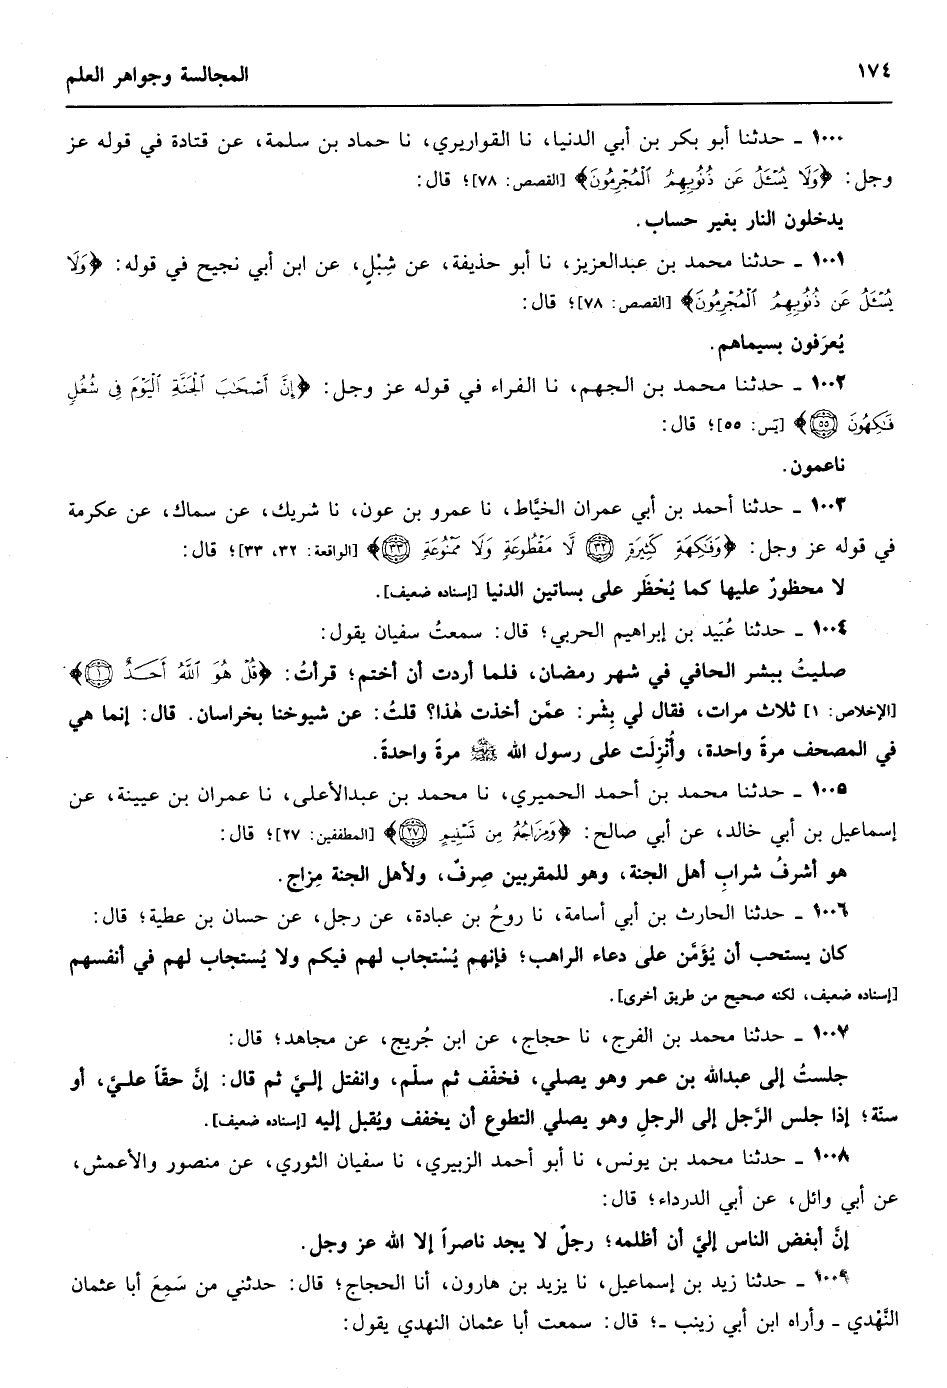 ١٧٤ المجالسة وجواهر العلم
١٠٠٠ ـ حدثنا أبو بكر بن أبي الدنيا، نا القواريري، نا حماد بن سلمة، عن قتادة في قوله عز
وجل: ﴿وَلَا يُسْـَٔلُ عَن ذُنُوبِهِمُ ٱلْمُجْرِمُونَ﴾ [القصص: ٧٨]؛ قال:
يدخلون النار بغير حساب.
١٠٠١ ـ حدثنا محمد بن عبدالعزيز، نا أبو حذيفة، عن شِبْلٍ، عن ابن أبي نجيح في قوله: ﴿وَلَا
يُسْـَٔلُ عَن ذُنُوبِهِمُ ٱلْمُجْرِمُونَ﴾ [القصص: ٧٨]؛ قال:
يُعرَفون بسيماهم.
١٠٠٢ ـ حدثنا محمد بن الجهم، نا الفراء في قوله عز وجل: ﴿إِنَّ أَصْحَٰبَ ٱلْجَنَّةِ ٱلْيَوْمَ فِى شُغُلٍ
فَٰكِهُونَ ٥٥﴾ [يَس: ٥٥]؛ قال:
ناعمون.
١٠٠٣ ـ حدثنا أحمد بن أبي عمران الخيَّاط، نا عمرو بن عون، نا شريك، عن سماك، عن عكرمة
في قوله عز وجل: ﴿وَفَٰكِهَةٍ كَثِيرَةٍ ٣٢ لَّا مَقْطُوعَةٍ وَلَا مَمْنُوعَةٍ ٣٣﴾ [الواقعة: ٣٢، ٣٣]؛ قال:
لا محظورٌ عليها كما يُحْظَر على بساتين الدنيا [إسناده ضعيف].
١٠٠٤ ـ حدثنا عُبَيد بن إبراهيم الحربي؛ قال: سمعتُ سفيان يقول:
صليتُ ببشر الحافي في شهر رمضان، فلما أردت أن أختم؛ قرأتُ: ﴿قُلْ هُوَ ٱللَّهُ أَحَدٌ ١﴾
[الإخلاص: ١] ثلاث مرات، فقال لي بِشْر: عمَّن أخذت هٰذا؟ قلتُ: عن شيوخنا بخراسان. قال: إنما هي
في المصحف مرةً واحدة، وأُنْزِلَت على رسول الله ﷺ مرةً واحدةً.
١٠٠٥ ـ حدثنا محمد بن أحمد الحميري، نا محمد بن عبدالأعلى، نا عمران بن عيينة، عن
إسماعيل بن أبي خالد، عن أبي صالح: ﴿وَمِزَاجُهُۥ مِن تَسْنِيمٍ ٢٧﴾ [المطففين: ٢٧]؛ قال:
هو أشرفُ شرابِ أهل الجنة، وهو للمقربين صِرفٌ، ولأهل الجنة مِزاج.
١٠٠٦ ـ حدثنا الحارث بن أبي أسامة، نا روحُ بن عبادة، عن رجل، عن حسان بن عطية؛ قال:
كان يستحب أن يُؤَمَّن على دعاء الراهب؛ فإنهم يُسْتجاب لهم فيكم ولا يُستجاب لهم في أنفسهم
[إسناده ضعيف، لكنه صحيح من طريق أخرى].
١٠٠٧ ـ حدثنا محمد بن الفرج، نا حجاج، عن ابن جُريج، عن مجاهد؛ قال:
جلستُ إلى عبدالله بن عمر وهو يصلي، فخفَّف ثم سلَّم، وانفتل إليَّ ثم قال: إنَّ حقّاً عليَّ، أو
سنّة؛ إذا جلس الرَّجل إلى الرجلِ وهو يصلي التطوع أن يخفف ويُقبل إليه [إسناده ضعيف].
١٠٠٨ ـ حدثنا محمد بن يونس، نا أبو أحمد الزبيري، نا سفيان الثوري، عن منصور والأعمش،
عن أبي وائل، عن أبي الدرداء؛ قال:
إنَّ أبغض الناس إليَّ أن أظلمه؛ رجلٌ لا يجد ناصراً إلا الله عز وجل.
١٠٠٩ ـ حدثنا زيد بن إسماعيل، نا يزيد بن هارون، أنا الحجاج؛ قال: حدثني من سَمِعَ أبا عثمان
النَّهْدي ـ وأراه ابن أبي زينب ـ؛ قال: سمعت أبا عثمان النهدي يقول: